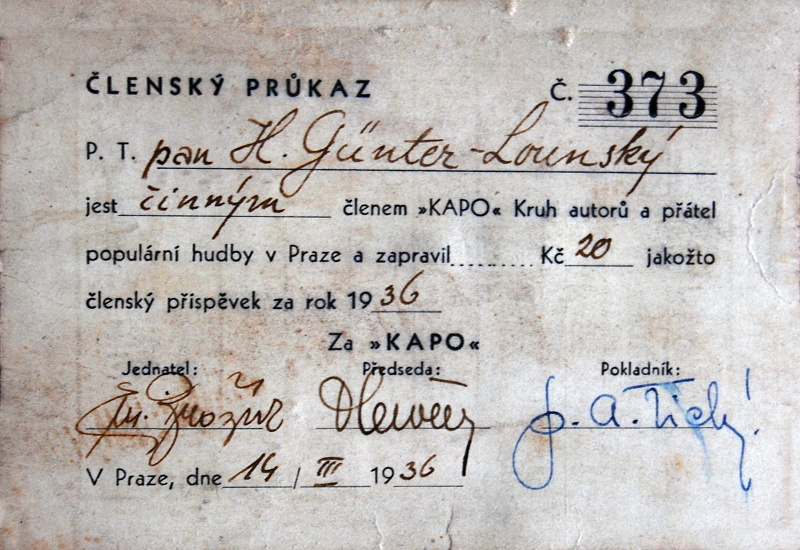 ČLENSKÝ PRŮKAZ Č. 373
P. T. pan H. Günter-Lounský
jest činným členem »KAPO« Kruh autorů a přátel
populární hudby v Praze a zapravil......... Kč 20 jakožto
členský příspěvek za rok 1936
Za »KAPO«
Jednatel: Předseda: Pokladník:
J. A. Tichý
V Praze, dne 14 / III 1936